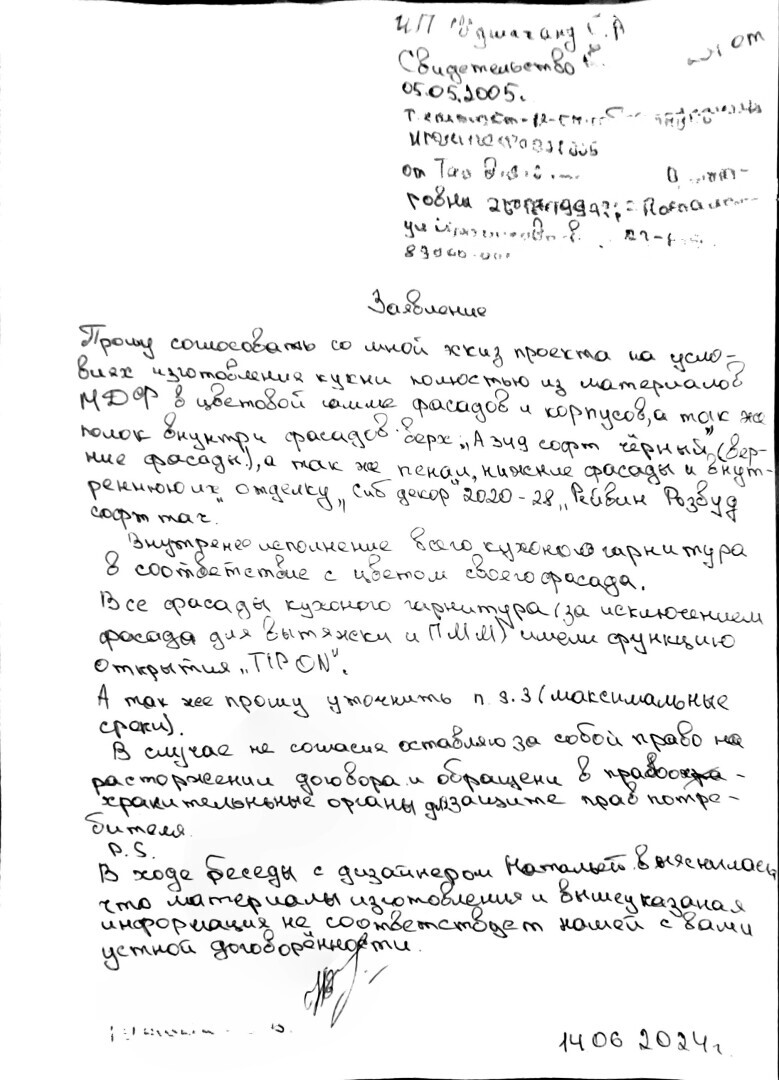 ИП
Свидетельство от
05.05.2005.
от
ровни
Заявление
Прошу согласовать со мной эскиз проекта на усло-
виях изготовления кухни полностью из материалов
МДФ в цветовой гамме фасадов и корпусов, а так же
полок внутри фасадов: верх „Азид софт чёрный" (вер-
ние фасады), а так же пенал, нижние фасады и внут-
реннюю их отделку „Сиб декор" 2020-28 „Рейвин Розвуд
софт тач.
Внутренее исполнение всего кухоного гарнитура
в соответствие с цветом своего фасада.
Все фасады кухоного гарнитура (за исключением
фасада для вытяжки и ПММ) имели функцию
открытия „TIP ON".
А так же прошу уточнить п. 3.3 (максимальные
сроки).
В случае не согласия оставляю за собой право на
расторжении договора и обращени в право -
хранительньные органы для защите прав потре-
бителя.
P.S.
В ходе беседы с дизайнером Натальей выяснилась
что материалы изготовления и вышеуказаная
информация не соответствует нашей с вами
устной договорённости.
14 06 2024г